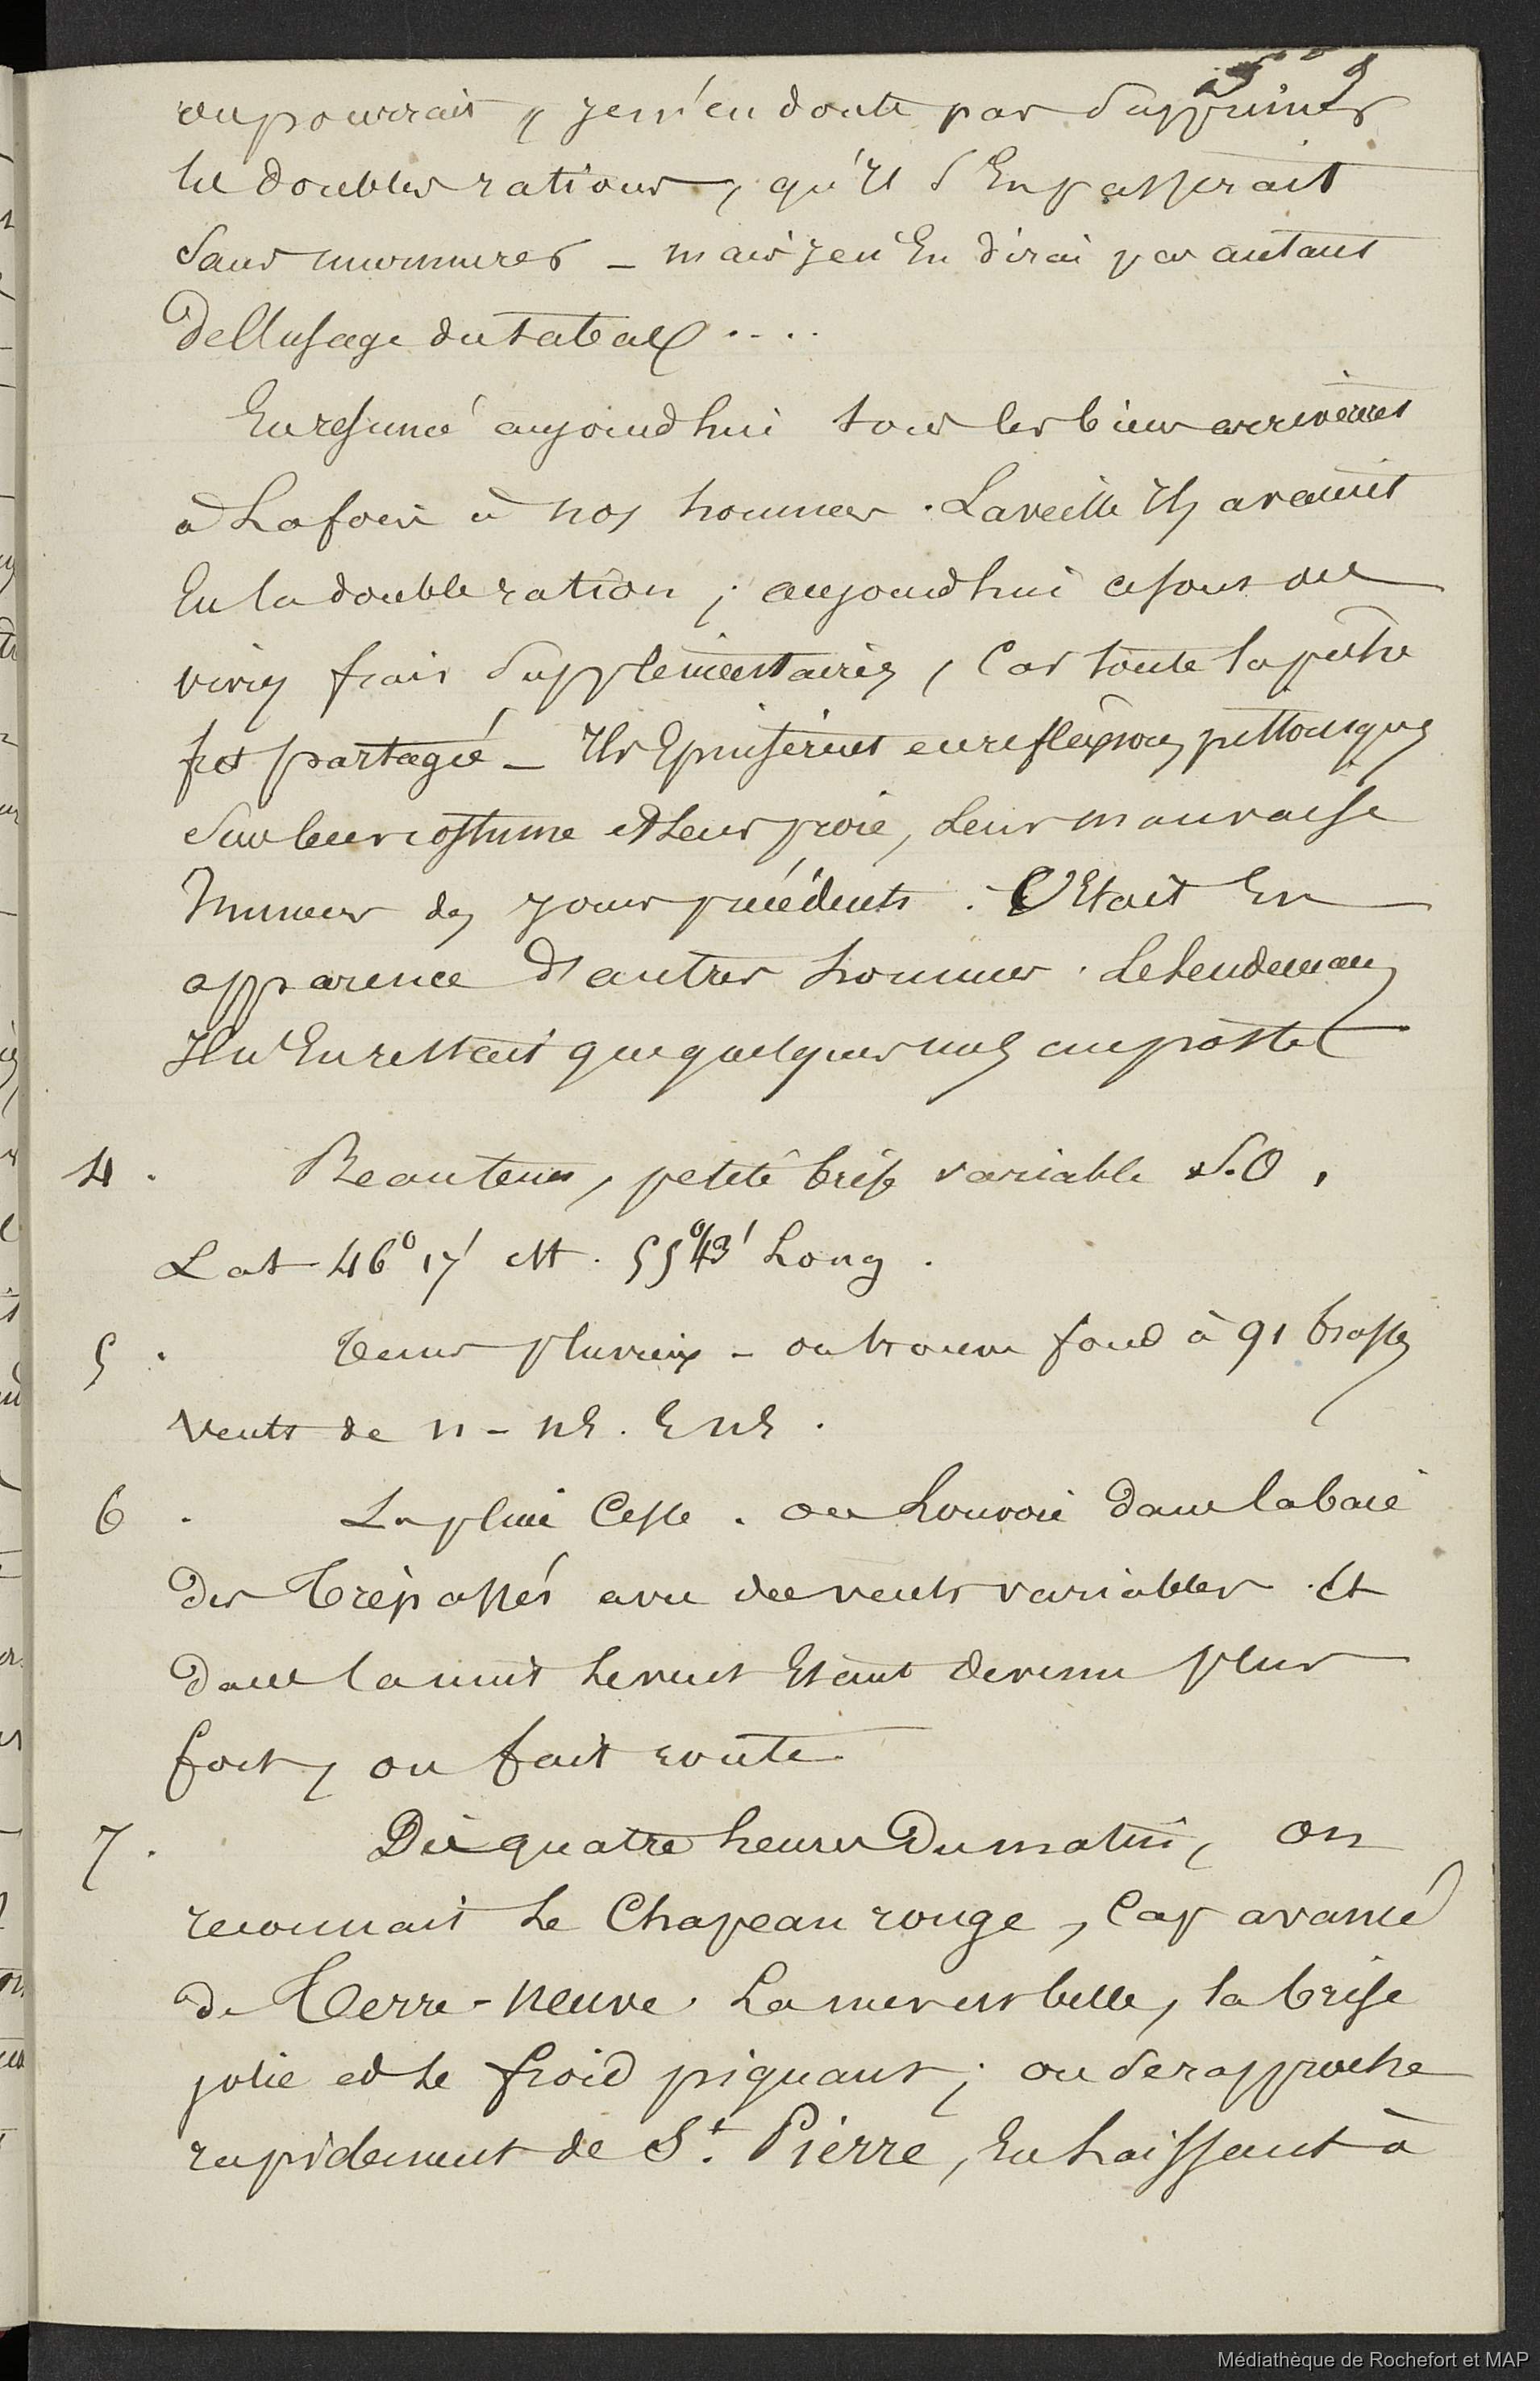 59
on pourrait, je n'en doute pas supprimer
les doubles rations, qu'il s'en passerait
sans murmures – mais je n'en dirai pas autant
de l'usage du tabac ....
En resumé aujourd'hui tous les biens arrivèrent
à la fois à nos hommes. La veille ils avaient
eu la double ration ; aujourd'hui ce sont des
vivres frais supplémentaires, car toute la pêche
fut partagée – Ils s'épuisèrent en reflexions pittoresques
sur leur costume et leur proie, leur mauvaise
humeur des jours précédents. C'était en
apparence d'autres hommes. Le lendemain
il n'en restait que quelques uns au poste
4. Beau tems, petite brise variable S.O,
Lat 46° 17' et. 55° 43' Long.
5. Tems pluvieux – on trouve fond à 91 brasses
Vents de N – NE. ENE.
6. La pluie cesse. on louvoie dans la baie
des Trépassés avec des vents variables. et
dans la nuit le vent étant devenu plus
fort, on fait route.
7. Dès quatre heures du matin, on
reconnait le Chapeau rouge, cap avancé
de Terre-Neuve. La mer est belle, la brise
jolie et le froid piquant ; on se rapproche
rapidement de St. Pierre, en laissant à
Médiathèque de Rochefort et MAP